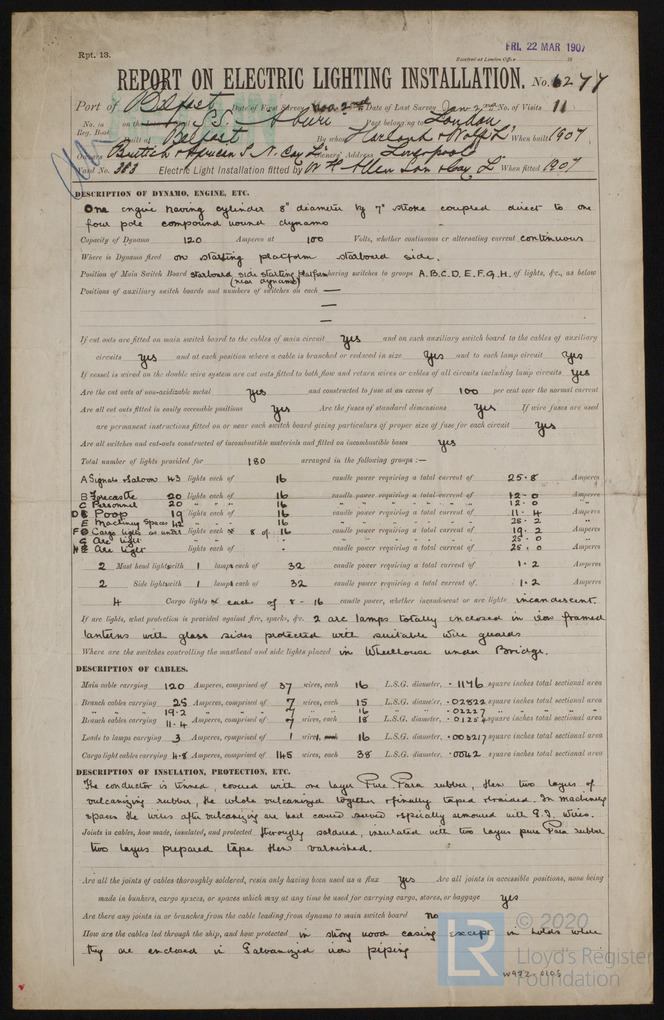 Rpt. 13.
FRI. 22 MAR 1907
Received at London Office 19
REPORT ON ELECTRIC LIGHTING INSTALLATION. No. 6277
Port of Belfast Date of First Survey Nov. 2nd Date of Last Survey Jan 2nd No. of Visits 11
No. in Reg. Book on the S.S. Aburi Port belonging to London
Built at Belfast By whom Harland & Wolff Ld When built 1907
Owners British & African S. N. Coy Ld Owners' Address Liverpool
Yard No. 383 Electric Light Installation fitted by W H Allen Son & Coy Ld When fitted 1907
DESCRIPTION OF DYNAMO, ENGINE, ETC.
One engine having cylinder 8" diameter by 7" stroke coupled direct to one
four pole compound wound dynamo
Capacity of Dynamo 120 Amperes at 100 Volts, whether continuous or alternating current continuous
Where is Dynamo fixed on starting platform starboard side.
Position of Main Switch Board starboard side starting platform having switches to groups A. B. C. D. E. F. G. H. of lights, &c., as below
(near dynamo)
Positions of auxiliary switch boards and numbers of switches on each —
—
—
If cut outs are fitted on main switch board to the cables of main circuit yes and on each auxiliary switch board to the cables of auxiliary
circuits yes and at each position where a cable is branched or reduced in size yes and to each lamp circuit yes
If vessel is wired on the double wire system are cut outs fitted to both flow and return wires or cables of all circuits including lamp circuits yes
Are the cut outs of non-oxidizable metal yes and constructed to fuse at an excess of 100 per cent over the normal current
Are all cut outs fitted in easily accessible positions yes Are the fuses of standard dimensions yes If wire fuses are used
are permanent instructions fitted on or near each switch board giving particulars of proper size of fuse for each circuit yes
Are all switches and cut-outs constructed of incombustible materials and fitted on incombustible bases yes
Total number of lights provided for 180 arranged in the following groups :—
A Signals & Saloon 43 lights each of 16 candle power requiring a total current of 25.8 Amperes
B Forecastle 20 lights each of 16 candle power requiring a total current of 12.0 Amperes
C Personnel 20 " " " 16 " " " " " " 12.0 "
D Poop 19 lights each of 16 candle power requiring a total current of 11.4 Amperes
E Machinery Spaces 42 " " " 16 " " " " " " 25.2 "
F Cargo lights as under lights each 8 of 16 candle power requiring a total current of 19.2 Amperes
G Arc light " " " " " " " " 25.0 "
H Arc light lights each of candle power requiring a total current of 25.0 Amperes
2 Mast head lights with 1 lamps each of 32 candle power requiring a total current of 1.2 Amperes
2 Side lights with 1 lamps each of 32 candle power requiring a total current of 1.2 Amperes
4 Cargo lights each of 8 - 16 candle power, whether incandescent or arc lights incandescent.
If arc lights, what protection is provided against fire, sparks, &c. 2 arc lamps totally enclosed in iron framed
lanterns with glass sides protected with suitable wire guards
Where are the switches controlling the masthead and side lights placed in Wheelhouse under Bridge.
DESCRIPTION OF CABLES.
Main cable carrying 120 Amperes, comprised of 37 wires, each 16 L.S.G. diameter, .1176 square inches total sectional area
Branch cables carrying 25 Amperes, comprised of 7 wires, each 15 L.S.G. diameter, .02822 square inches total sectional area
" " " 19.2 " " " 7 " " 16 " " .02227 " " " "
Branch cables carrying 11.4 Amperes, comprised of 7 wires, each 18 L.S.G. diameter, .01254 square inches total sectional area
Leads to lamps carrying 3 Amperes, comprised of 1 wires, each 16 L.S.G. diameter, .003217 square inches total sectional area
Cargo light cables carrying 4.8 Amperes, comprised of 145 wires, each 38 L.S.G. diameter, .0042 square inches total sectional area
DESCRIPTION OF INSULATION, PROTECTION, ETC.
The conductor is tinned, covered with one layer Pure Para rubber, then two layers of
vulcanizing rubber, the whole vulcanized together & finally taped & braided. In machinery
spaces the wires after vulcanizing are lead covered served & specially armoured with G.I. wires.
Joints in cables, how made, insulated, and protected thoroughly soldered, insulated with two layers pure Para rubber
two layers prepared tape then varnished.
Are all the joints of cables thoroughly soldered, resin only having been used as a flux yes Are all joints in accessible positions, none being
made in bunkers, cargo spaces, or spaces which may at any time be used for carrying cargo, stores, or baggage yes
Are there any joints in or branches from the cable leading from dynamo to main switch board no
How are the cables led through the ship, and how protected in strong wood casing except in holds where
they are enclosed in Galvanized iron piping
© 2020
LR
Lloyd's Register
Foundation
W972-0105